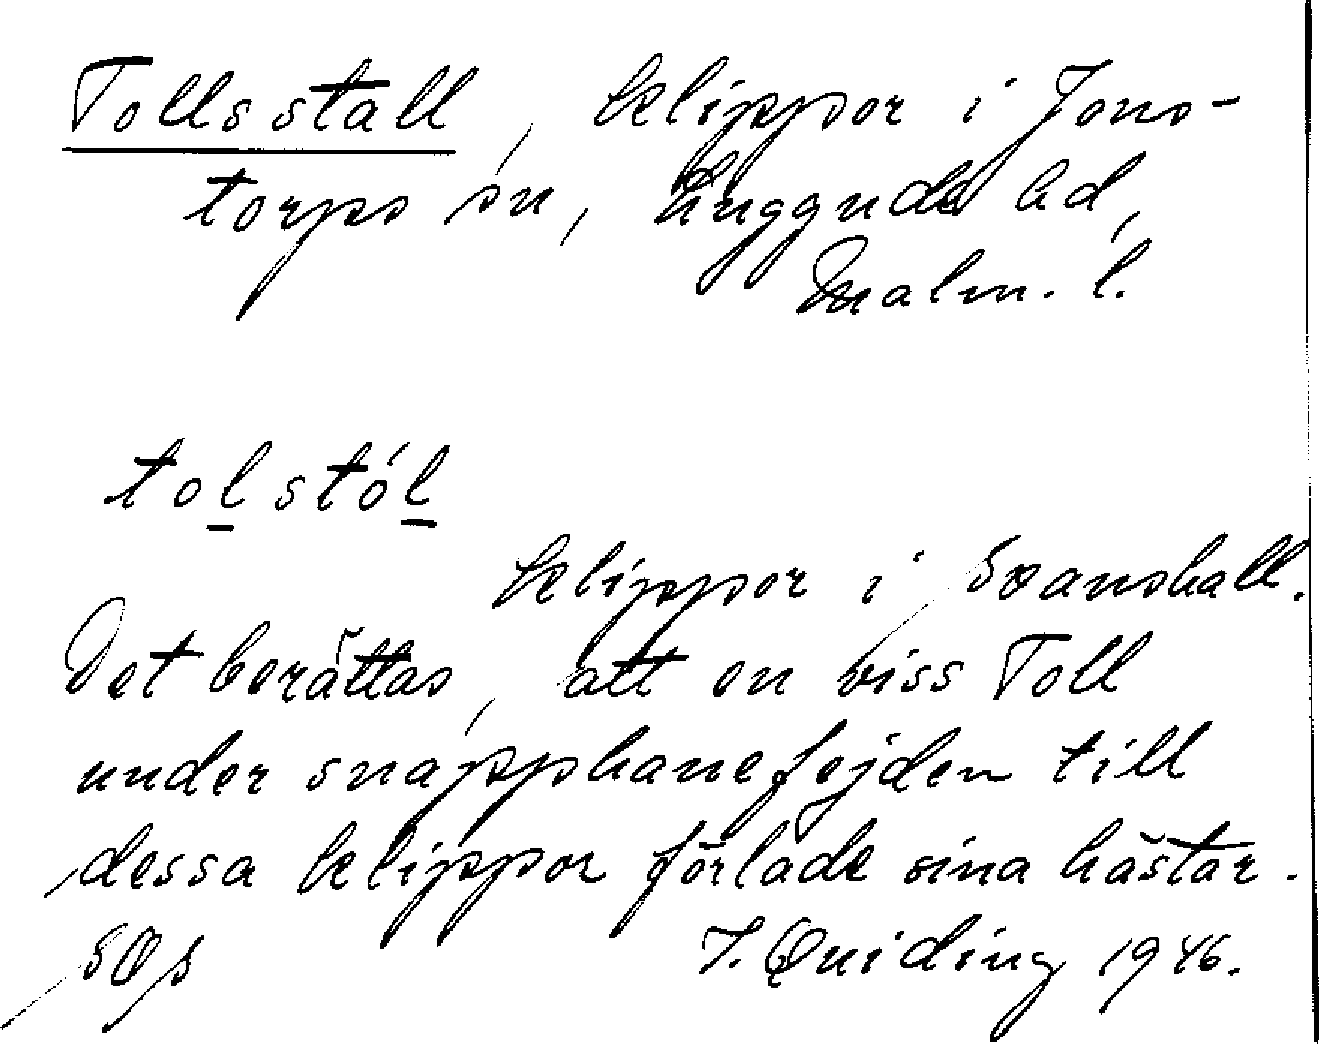 Tollsstall, klippor i Jons-
torps sn, Luggude hd,
Malm. l.
tolstól
klippor i Svanshall.
Det berättas, att en viss Toll
under snapphanefejden till
dessa klippor förlade sina hästar.
SOs I. Quiding 1946.